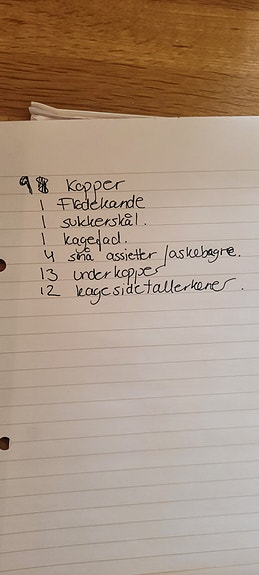 9 kopper
1 Flødekande
1 sukkerskål.
1 kagefad.
4 små assietter/askebægre.
13 underkopper
12 kagesidetallerkener.